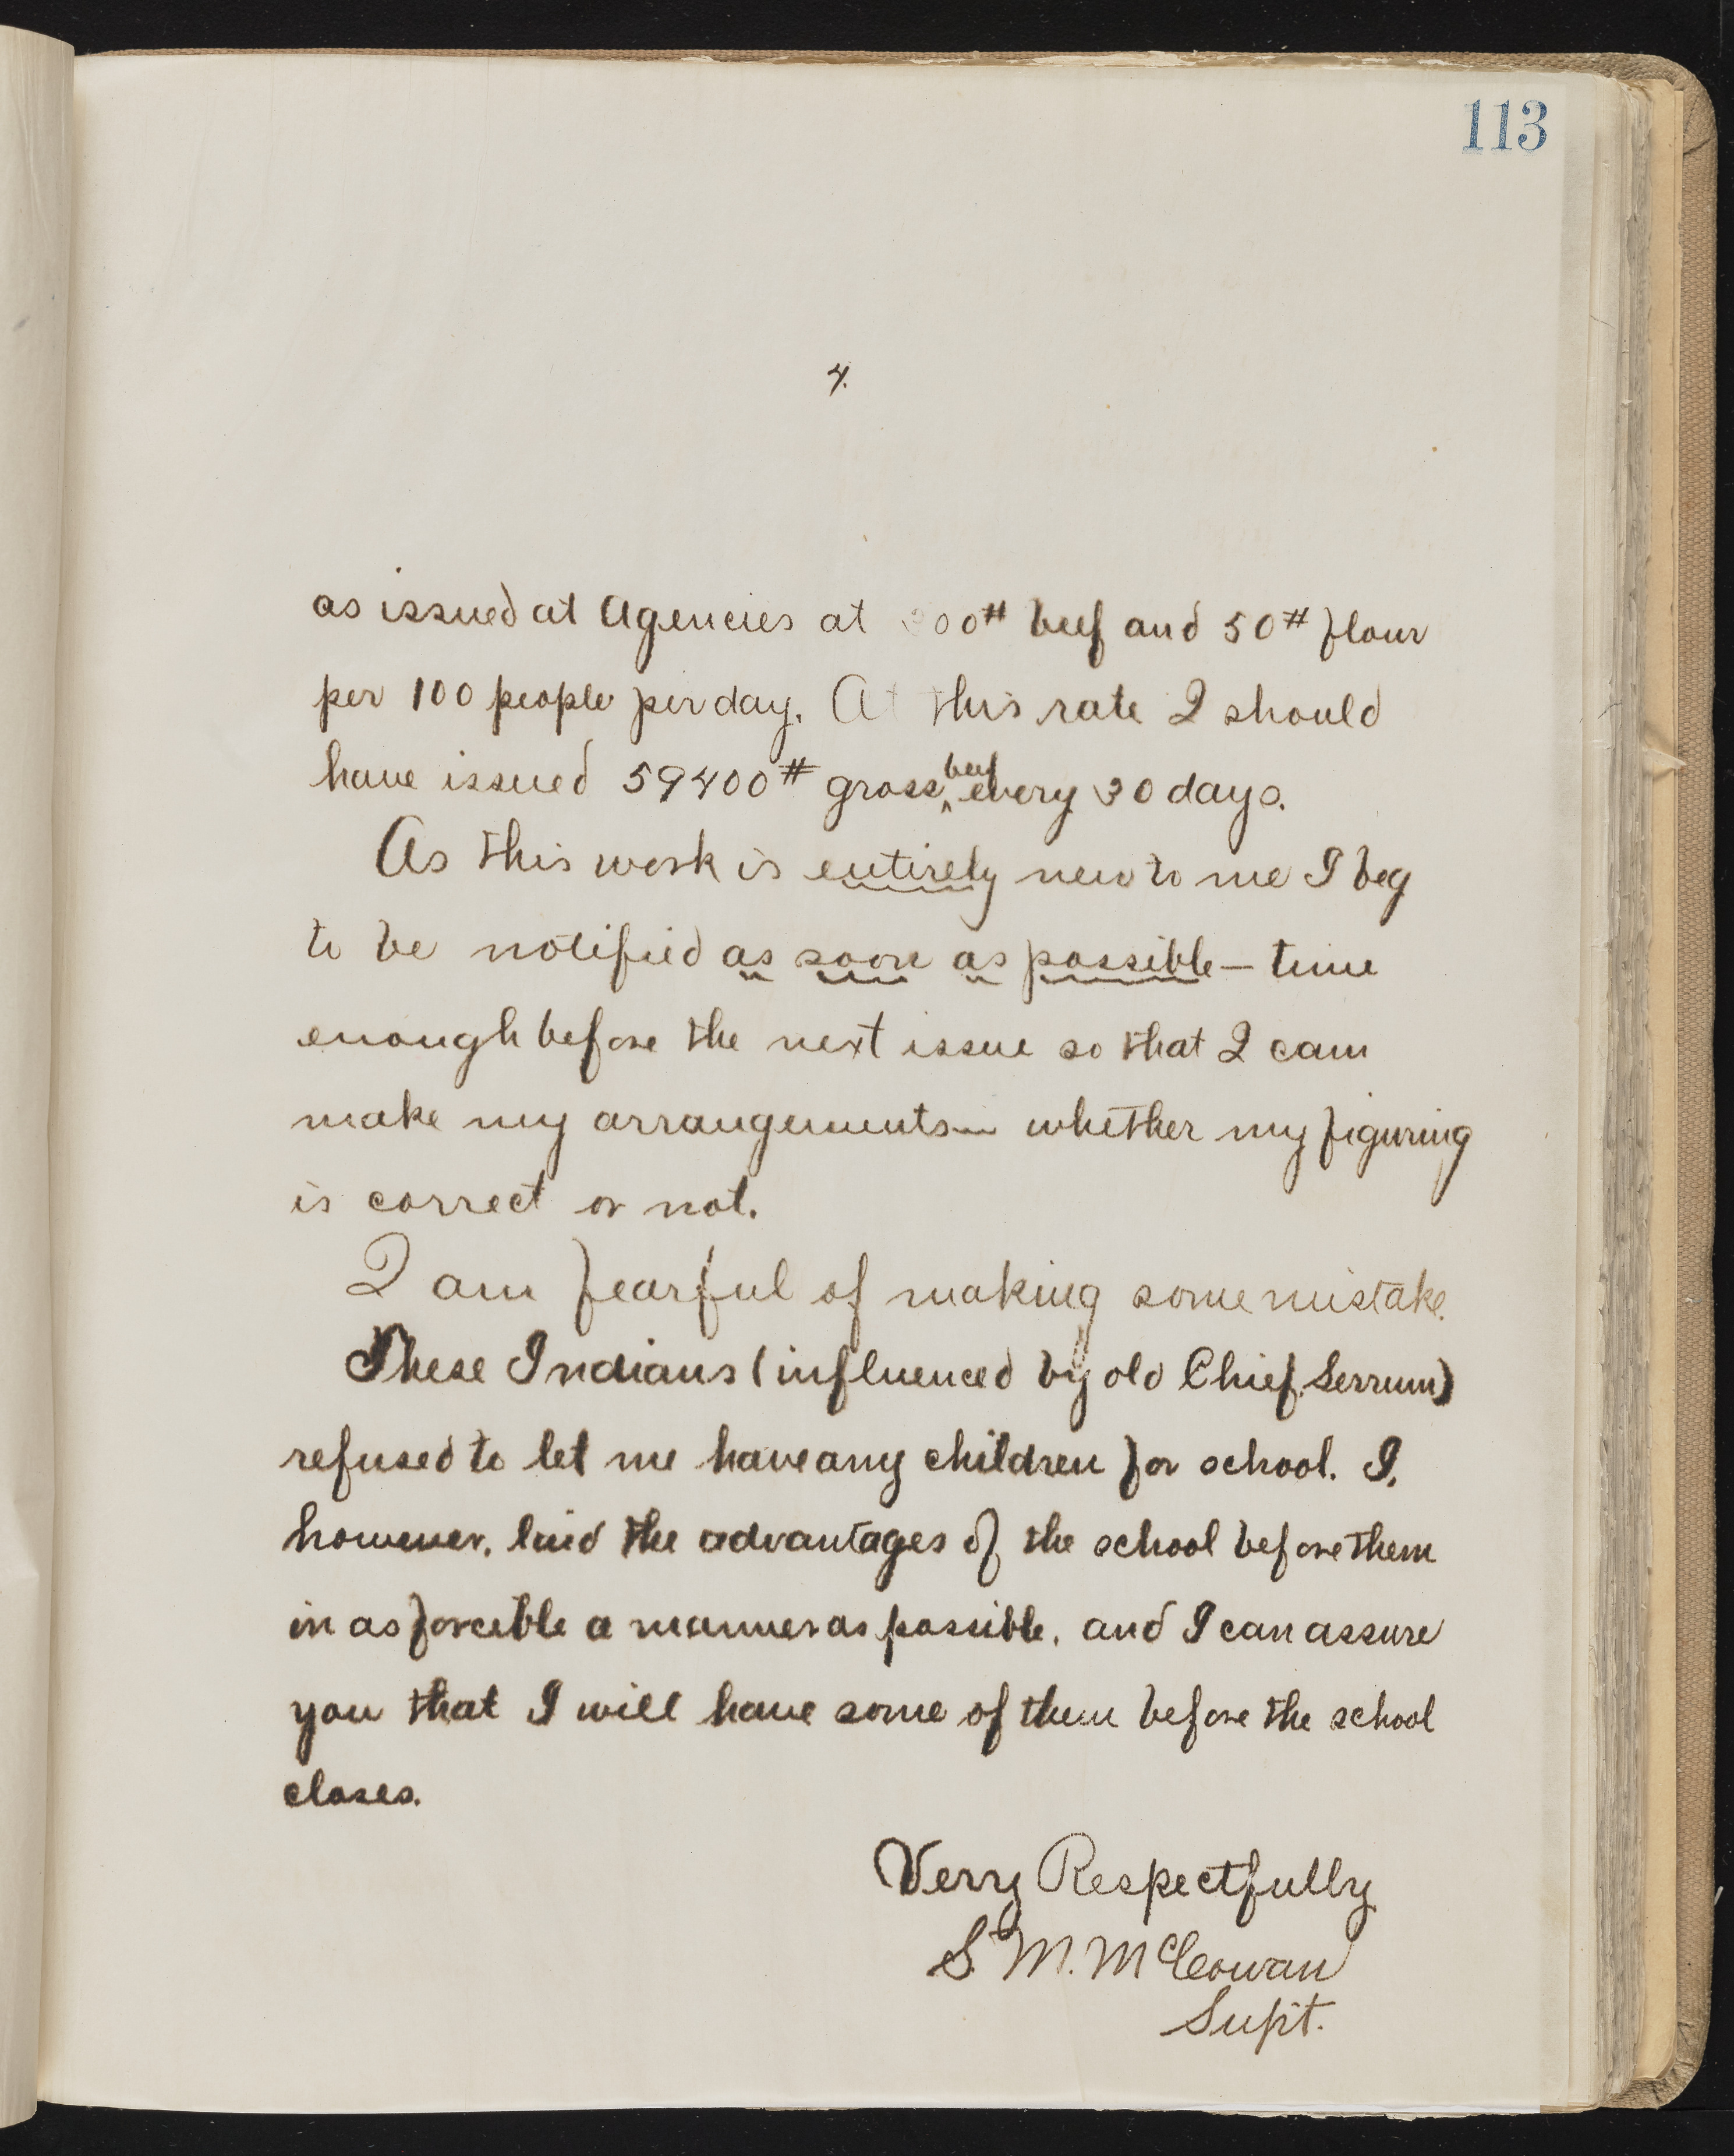 113
4.
as issued at Agencies at 300# beef and 50# flour
per 100 people per day. At this rate I should
have issued 59400# gross beef every 30 days.
As this work is entirely new to me I beg
to be notified as soon as possible — time
enough before the next issue so that I can
make my arrangements — whether my figuring
is correct or not.
I am fearful of making some mistake.
These Indians (influenced by old Chief Serrum)
refused to let me have any children for school. I,
however, laid the advantages of the school before them
in as forcible a manner as possible, and I can assure
you that I will have some of them before the school
closes.
Very Respectfully
S. M. McCowan
Supt.